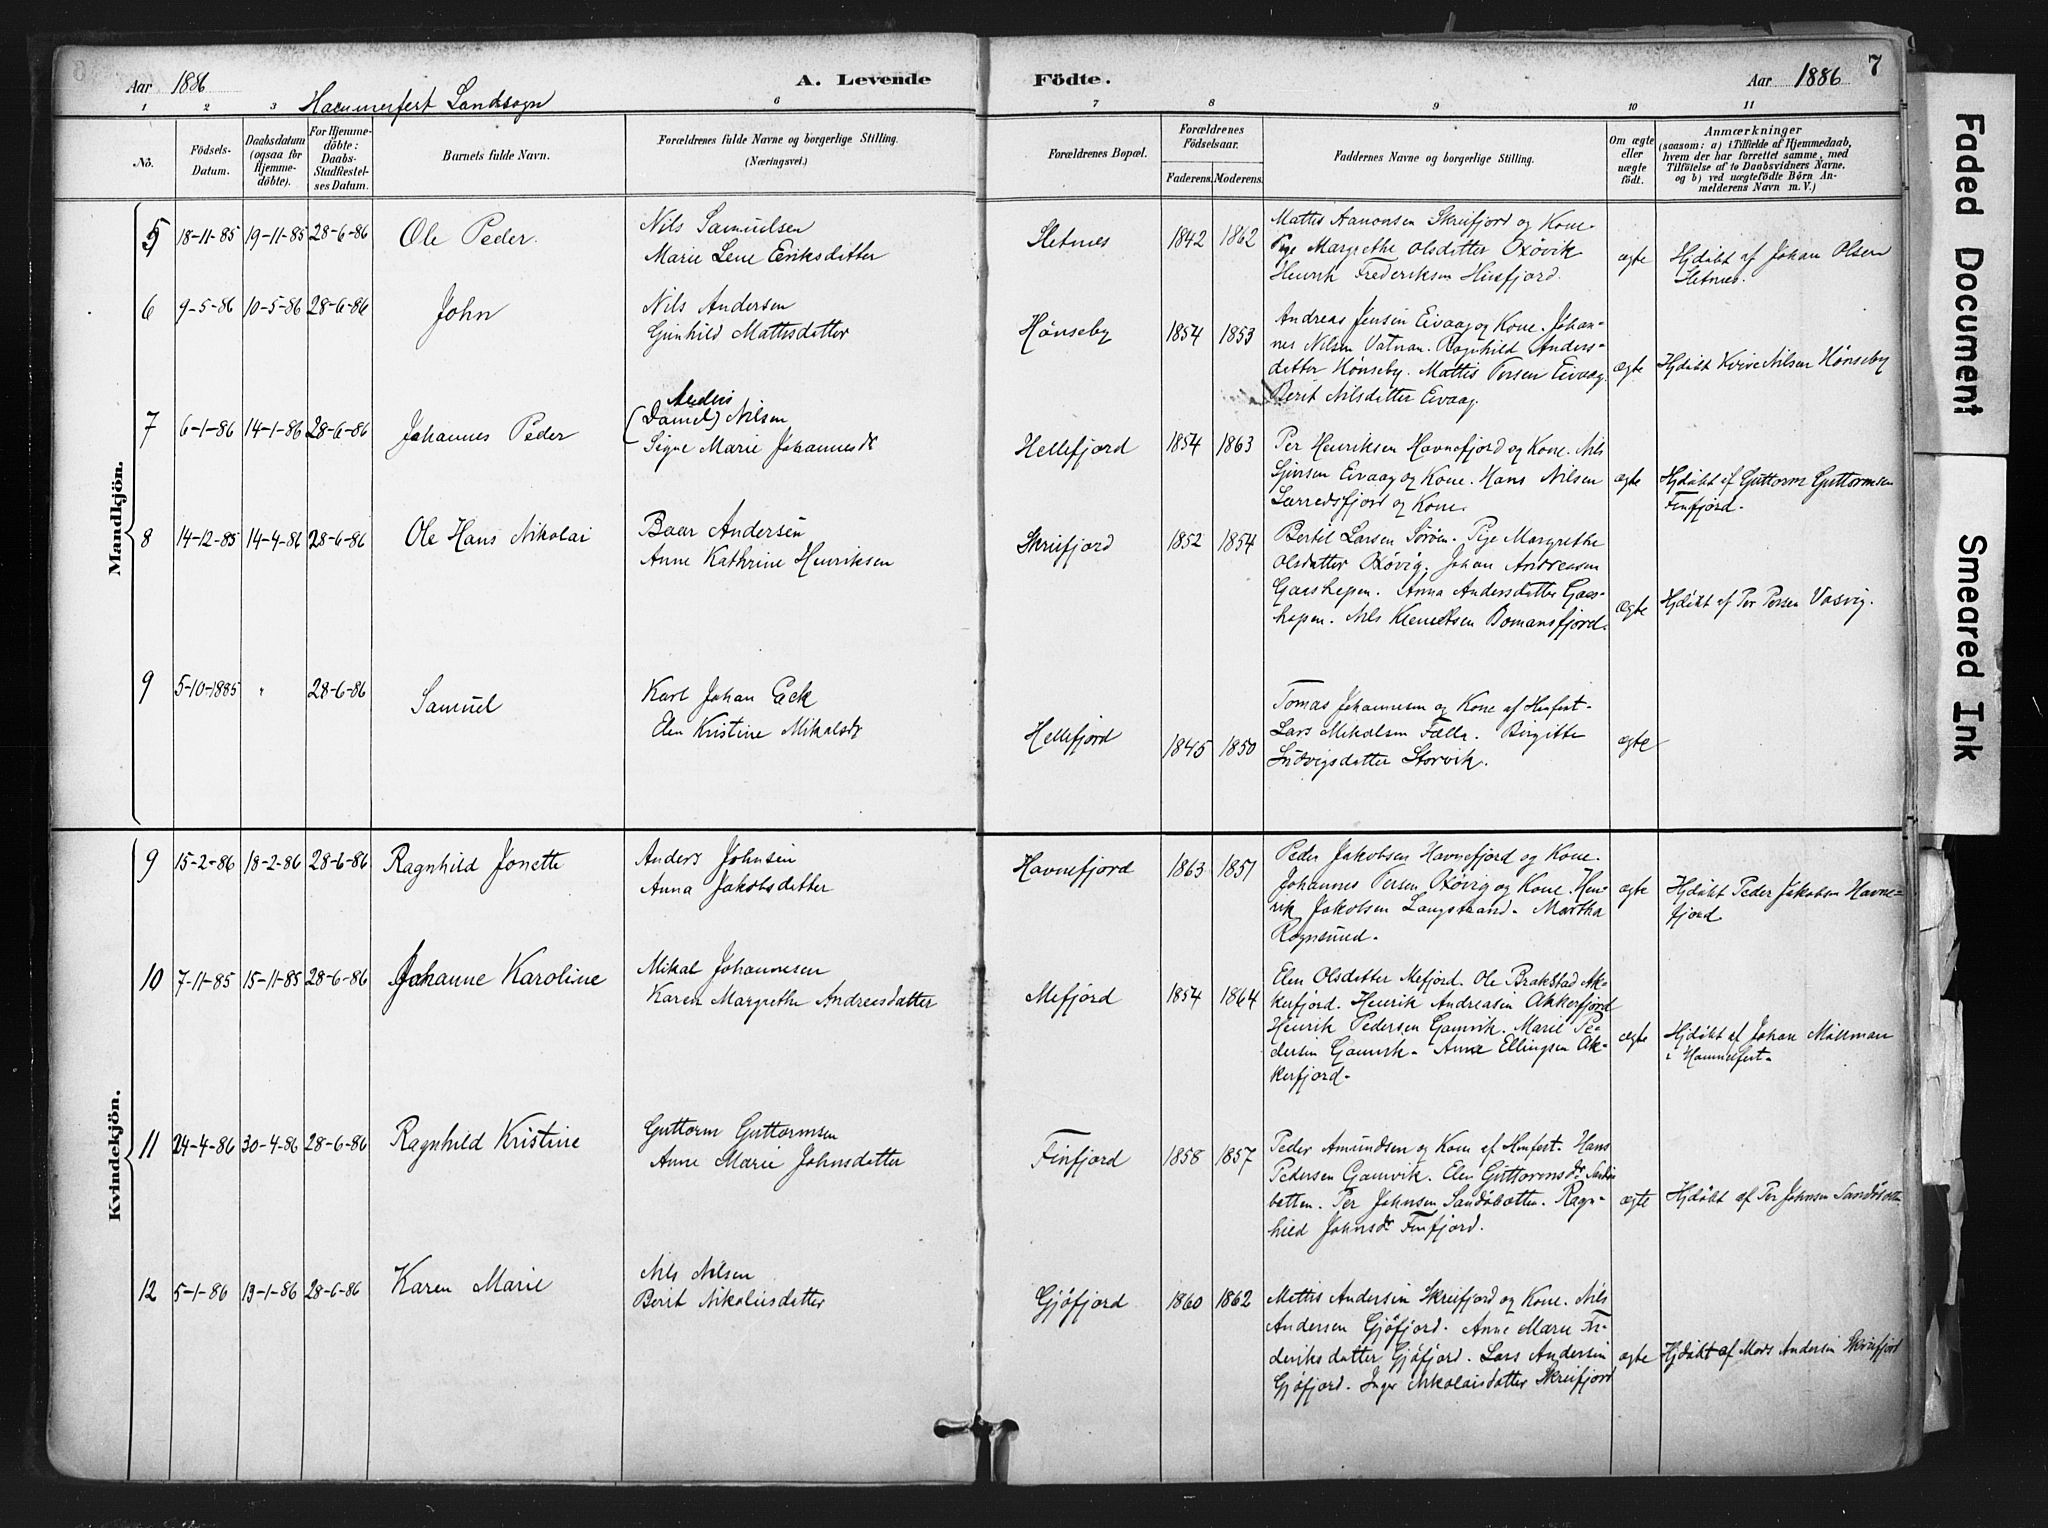 Aar 1886
A. Levende
Födte.
Aar 1886
7
Hammerfest Landsogn
1 2 3 6 7 8 9 10 11
No.
Födsels-
Datum.
Daabsdatum
(ogsaa for
Hjemme-
döbte).
For Hjemme-
döbte:
Daabs-
Stadfestel-
ses Datum.
Barnets fulde Navn.
Forældrenes fulde Navne og borgerlige Stilling.
(Næringsvei.)
Forældrenes Bopæl.
Forældrenes
Födselsaar.
Faderens. Moderens.
Faddernes Navne og borgerlige Stilling.
Om ægte
eller
uægte
födt.
Anmærkninger
(saasom: a) i Tilfælde af Hjemmedaab,
hvem der har forrettet samme, med
Tilföielse af to Daabsvidners Navne.
og b) ved uægtefödte Börn An-
melderens Navn m. V.)
Mandkjön.
5 18-11-85 19-11-85 28-6-86 Ole Peder.
Nils Samuelsen
Marie Lene Eriksdatter
Sletnes 1842 1862
Mattis Aanonsen Skreifjord og Kone.
Pige Margrethe Olsdatter Oxövik
Henrik Frederiksen Husfjord.
ægte
Hjdöbt af Johan Olsen
Sletnes.
6 9-5-86 10-5-86 28-6-86 John
Nils Andersen
Gunhild Mattisdatter
Hönseby 1854 1853
Andreas Jensen Eivaag og Kone. Johan-
nes Nilsen Vatnan. Ragnhild Anders-
datter Hönseby. Mattis Persen Eivaag.
Berit Nilsdatter Eivaag.
ægte
Hjdöbt Kvive Nilsen Hönseby
7 6-1-86 14-1-86 28-6-86 Johannes Peder
Anders
(Daniel) Nilsen
Signe Marie Johannesdr
Hellefjord 1854 1863
Per Henriksen Havnefjord og Kone. Nils
Sjursen Eivaag og Kone. Hans Nilsen
Larredsfjord og Kone.
ægte
Hjdöbt af Guttorm Guttormsen
Finfjord.
8 14-12-85 14-4-86 28-6-86 Ole Hans Nikolai
Baar Andersen
Anne Kathrine Henriksen
Skreifjord 1852 1854
Bertil Larsen Söröen. Pige Margrethe
Olsdatter Oxövig. Johan Andreasen
Gaashopen. Anna Andersdatter Gaas-
hopen. Nils Klemetsen Bomansfjord.
ægte
Hjdöbt af Per Persen Vasvig.
9 5-10-1885 " 28-6-86 Samuel
Karl Johan Eck
Elen Kristine Mikalsdr
Hellefjord 1845 1850
Tomas Johannesen og Kone af Hmfest-
Lars Mikalsen Fælle. Birgitte
Ludvigsdatter Storvik.
ægte
Kvindekjön.
9 15-2-86 18-2-86 28-6-86 Ragnhild Jonette
Anders Johnsen
Anna Jakobsdatter
Havnefjord 1863 1851
Peder Jakobsen Havnefjord og Kone.
Johannes Persen Oxövig og Kone. Hen-
rik Jakobsen Langstrand. Martha
Rognsund.
ægte
Hjdöbt Peder Jakobsen Havne-
fjord
10 7-11-85 15-11-85 28-6-86 Johanne Karoline
Mikal Johannesen
Karen Margrethe Andreasdatter
Mefjord 1854 1864
Elen Olsdatter Mefjord. Ole Brakstad Ak-
kerfjord. Henrik Andreasen Akkerfjord
Henrik Pedersen Gamvik. Marie Pe-
dersen Gamvik. Anna Ellingsen Ak-
kerfjord.
ægte
Hjdöbt af Johan Mollman
i Hammerfest.
11 24-4-86 30-4-86 28-6-86 Ragnhild Kristine
Guttorm Guttormsen
Anne Marie Johnsdatter
Finfjord 1858 1857
Peder Amundsen og Kone af Hmfest. Hans
Pedersen Gamvik. Elen Guttormsdr Sandö-
botten. Per Johnsen Sandöbotten. Ragn-
hild Johnsdr Finfjord.
ægte
Hjdöbt af Per Johnsen Sandöbotten
12 5-1-86 13-1-86 28-6-86 Karen Marie
Nils Nilsen
Berit Nikolaisdatter
Gjöfjord 1860 1862
Mattis Andersen Skreifjord og Kone. Nils
Andersen Gjöfjord. Anne Marie Fre-
deriksdatter Gjöfjord. Lars Andersen
Gjöfjord. Inger Nikolaisdatter Skreifjord
ægte
Hjdöbt af Mads Andersen Skreifjord
Faded Document
Smeared Ink